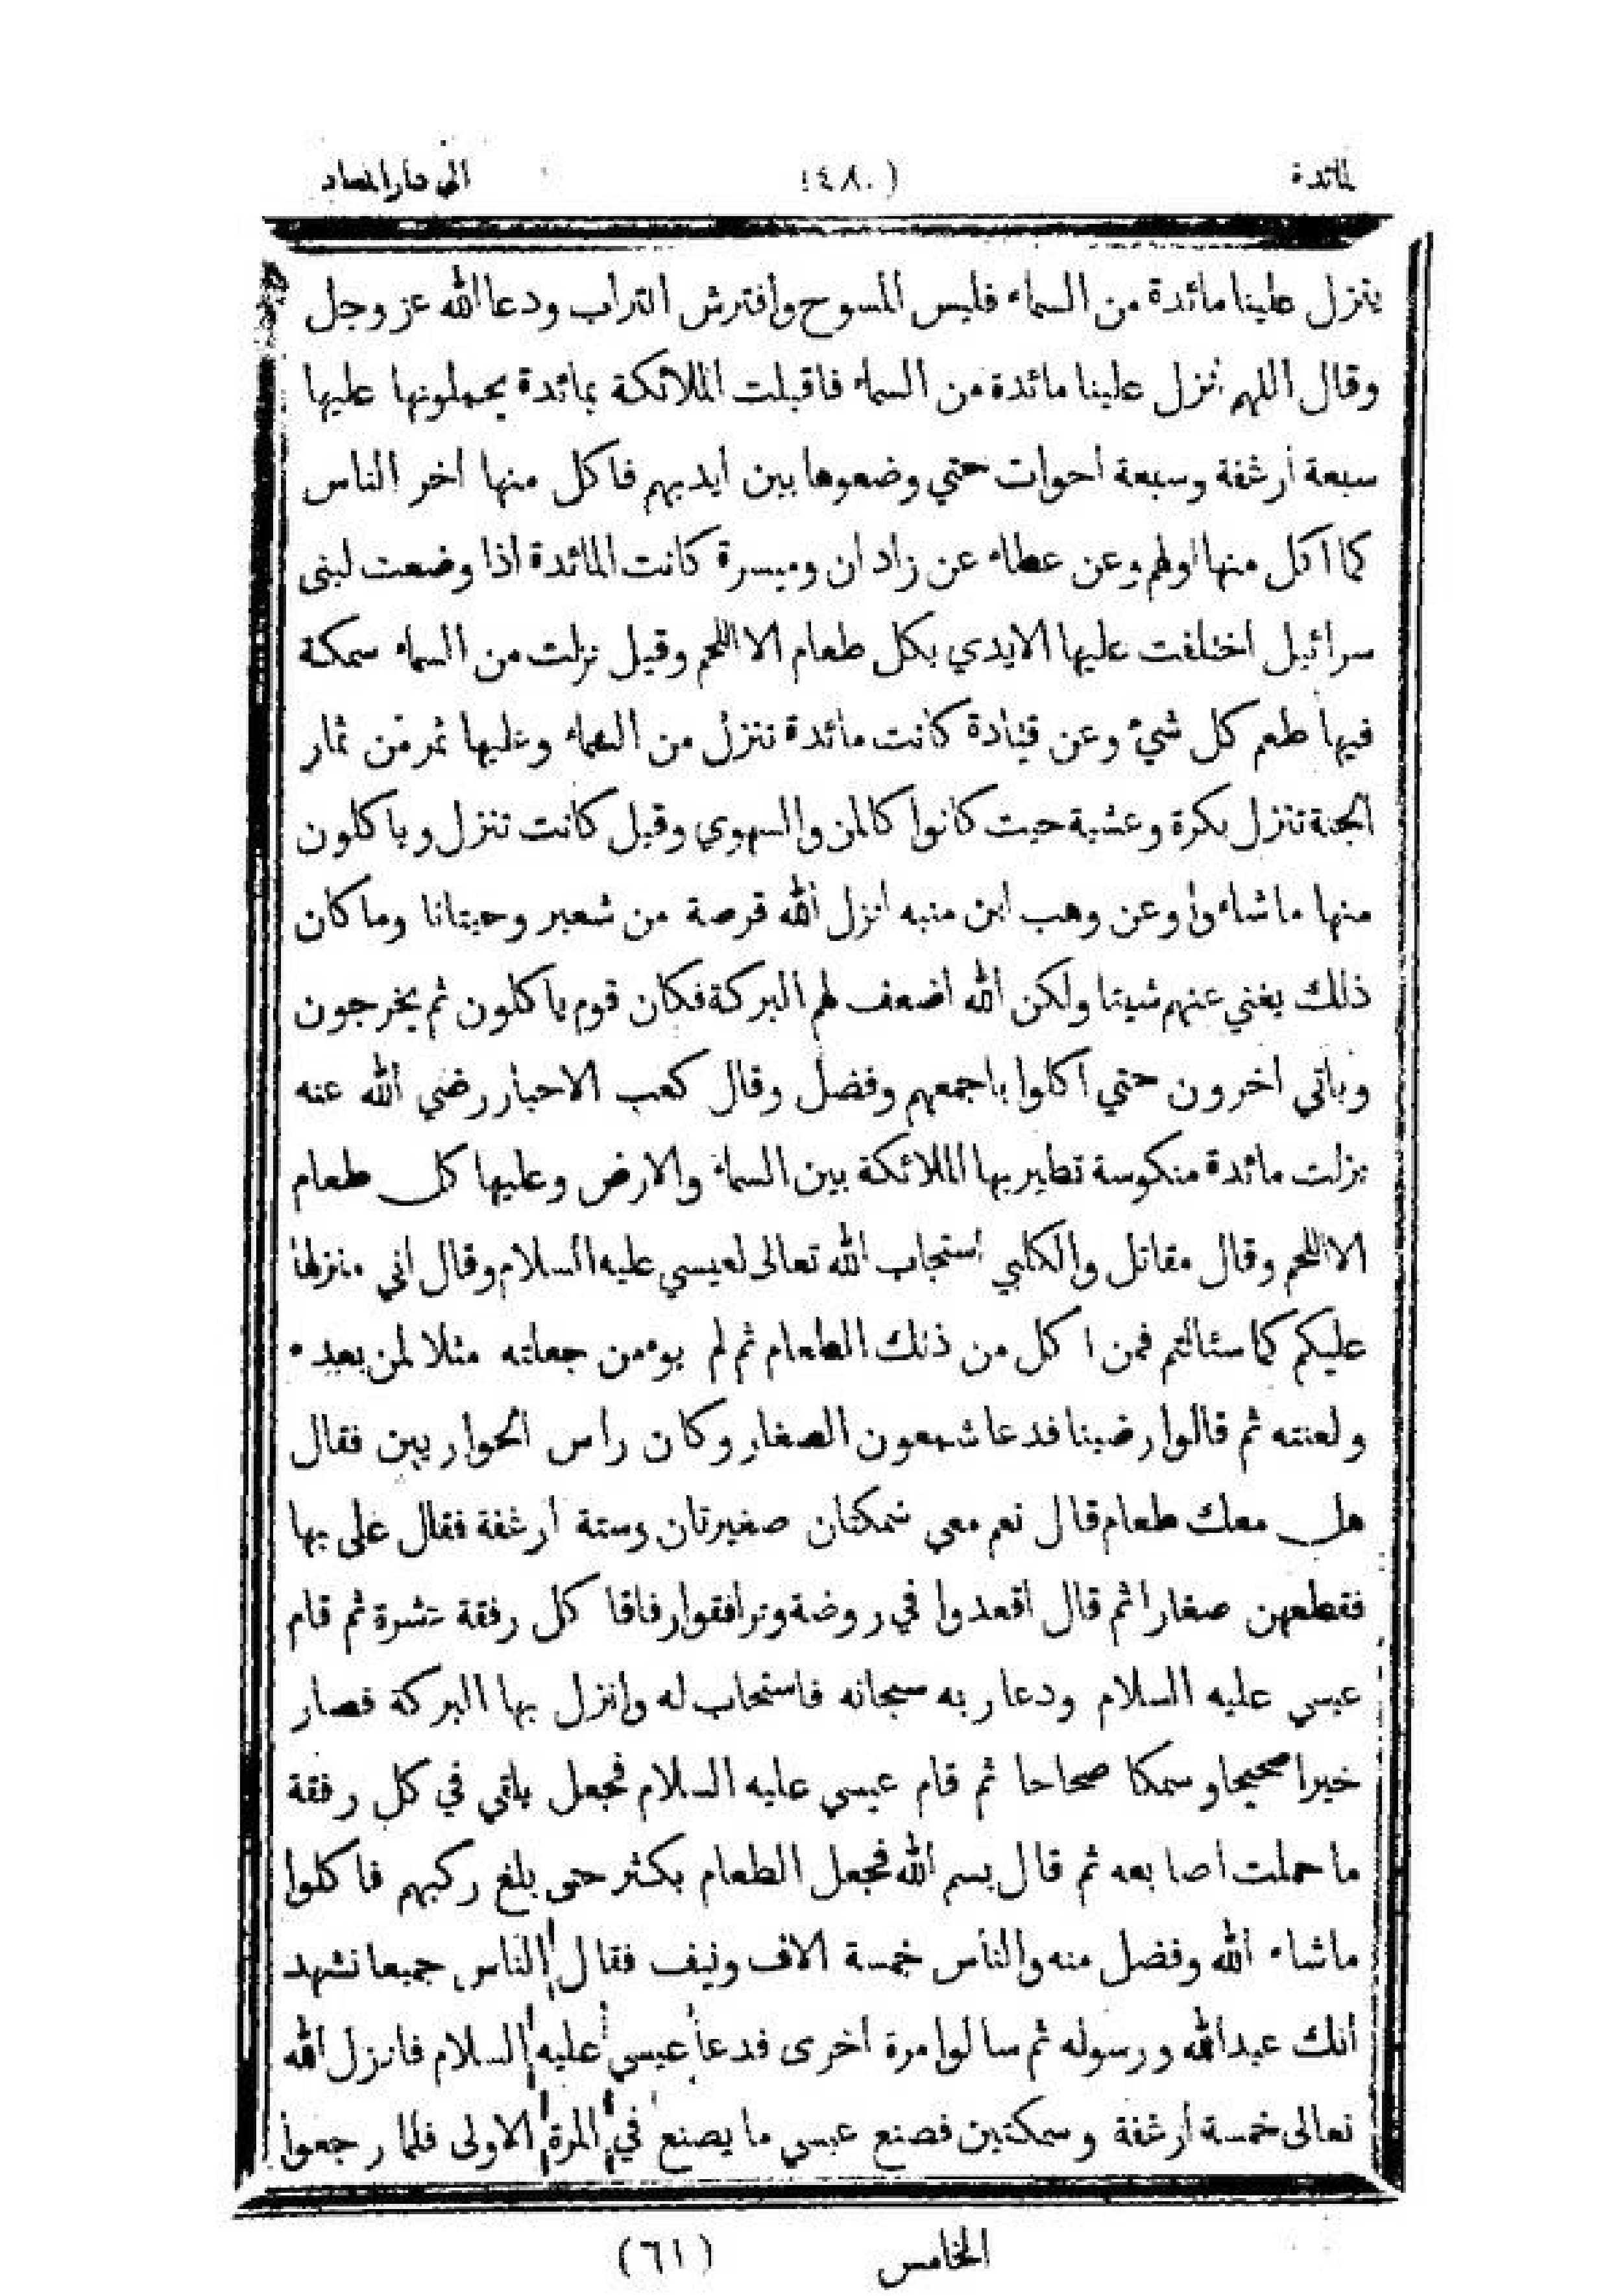 المائدة (٤٨٠) الى دار المعاد
ينزل علينا مائدة من السماء فلبس المسوح وافترش التراب ودعا الله عز وجل
وقال اللهم انزل علينا مائدة من السماء فاقبلت الملائكة بمائدة يحملونها عليها
سبعة أرغفة وسبعة احوات حتي وضعوها بين ايديهم فاكل منها اخر الناس
كما اكل منها اولهم وعن عطاء عن زادان وميسرة كانت المائدة اذا وضعت لبنى
سرائيل اختلفت عليها الايدي بكل طعام الا اللحم وقيل نزلت من السماء سمكة
فيها طعم كل شيء وعن قتادة كانت مائدة تنزل من السماء وعليها ثمر من ثمار
الجنة تنزل بكرة وعشية حيث كانوا كالمن والسلوي وقيل كانت تنزل وياكلون
منها ما شاءوا وعن وهب ابن منبه انزل الله قرصة من شعير وحيتانا وما كان
ذلك يغني عنهم شيئا ولكن الله اضعف لهم البركة فكان قوم ياكلون ثم يخرجون
وياتي اخرون حتي اكلوا باجمعهم وفضل وقال كعب الاحبار رضي الله عنه
نزلت مائدة منكوسة تطير بها الملائكة بين السماء والارض وعليها كل طعام
الا اللحم وقال مقاتل والكلبي استجاب الله تعالى لعيسي عليه السلام وقال اني منزلها
عليكم كما سئالتم فمن اكل من ذلك الطعام ثم لم يوءمن جعلته مثلا لمن بعده
ولعنته ثم قالوا رضينا فدعا شمعون الصفار وكان راس الحواريين فقال
هل معك طعام قال نعم معي سمكتان صغيرتان وستة ارغفة فقال علي بها
فقطعهن صغارا ثم قال أقعدوا في روضة وترافقوا رفاقا كل رفقة عشرة ثم قام
عيسي عليه السلام ودعا ربه سبحانه فاستجاب له وانزل بها البركة فصار
خبزا صحيحا وسمكا صحاحا ثم قام عيسي عليه السلام فجعل يلقي في كل رفقة
ما حملت اصابعه ثم قال بسم الله فجعل الطعام يكثر حتى بلغ ركبهم فاكلوا
ماشاء الله وفضل منه والناس خمسة الاف ونيف فقال الناس جميعا نشهد
أنك عبد الله ورسوله ثم سالوا مرة اخرى فدعا عيسي عليه السلام فانزل الله
تعالى خمسة أرغفة وسمكتين فصنع عيسي ما يصنع في المرة الاولى فلما رجعوا
الخامس (٦١)